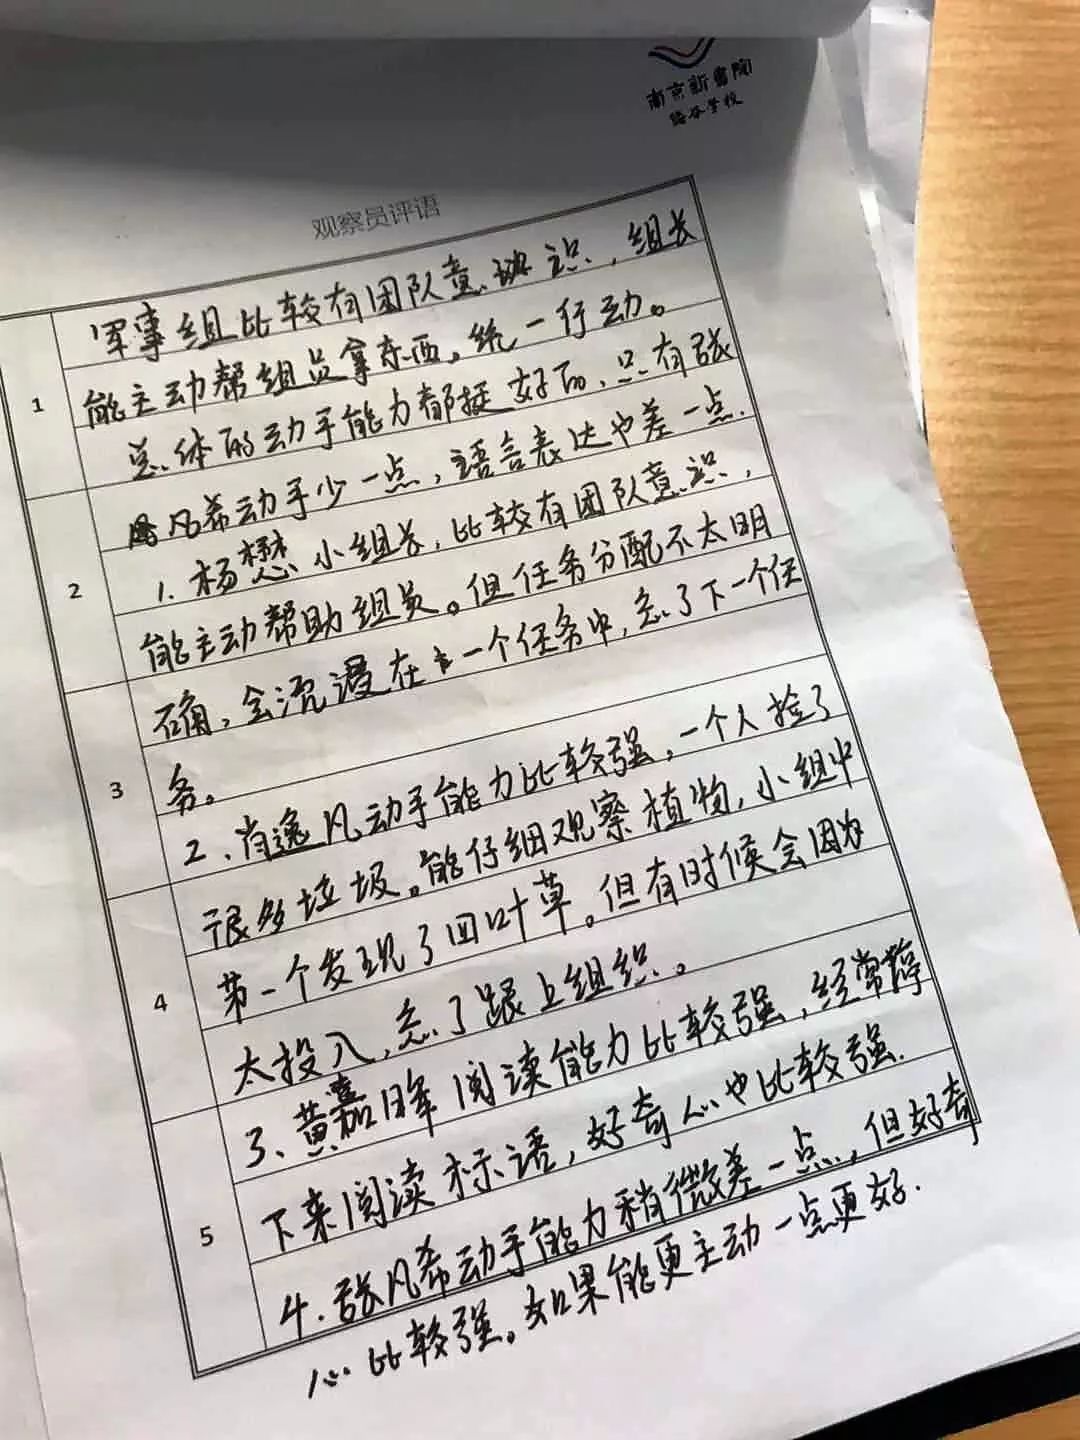 南京新书院
悠谷学校
观察员评语
军事组比较有团队意识，组长
1
能主动帮组员拿东西。统一行动。
总体的动手能力都挺好的，只有张
凡希动手少一点，语言表达也差一点.
2
1. 杨懋小组长，比较有团队意识，
能主动帮助组员。但任务分配不太明
确，会沉浸在一个任务中，忘了下一个任
3
务。
2、肖逸凡动手能力比较强，一个人捡了
很多垃圾。能仔细观察植物，小组中
4
第一个发现了四叶草。但有时候会因为
太投入，忘了跟上组织。
3、黄嘉晖阅读能力比较强，经常蹲
5
下来阅读标语，好奇心也比较强.
4. 张凡希动手能力稍微差一点，但好奇
心比较强。如果能更主动一点更好.